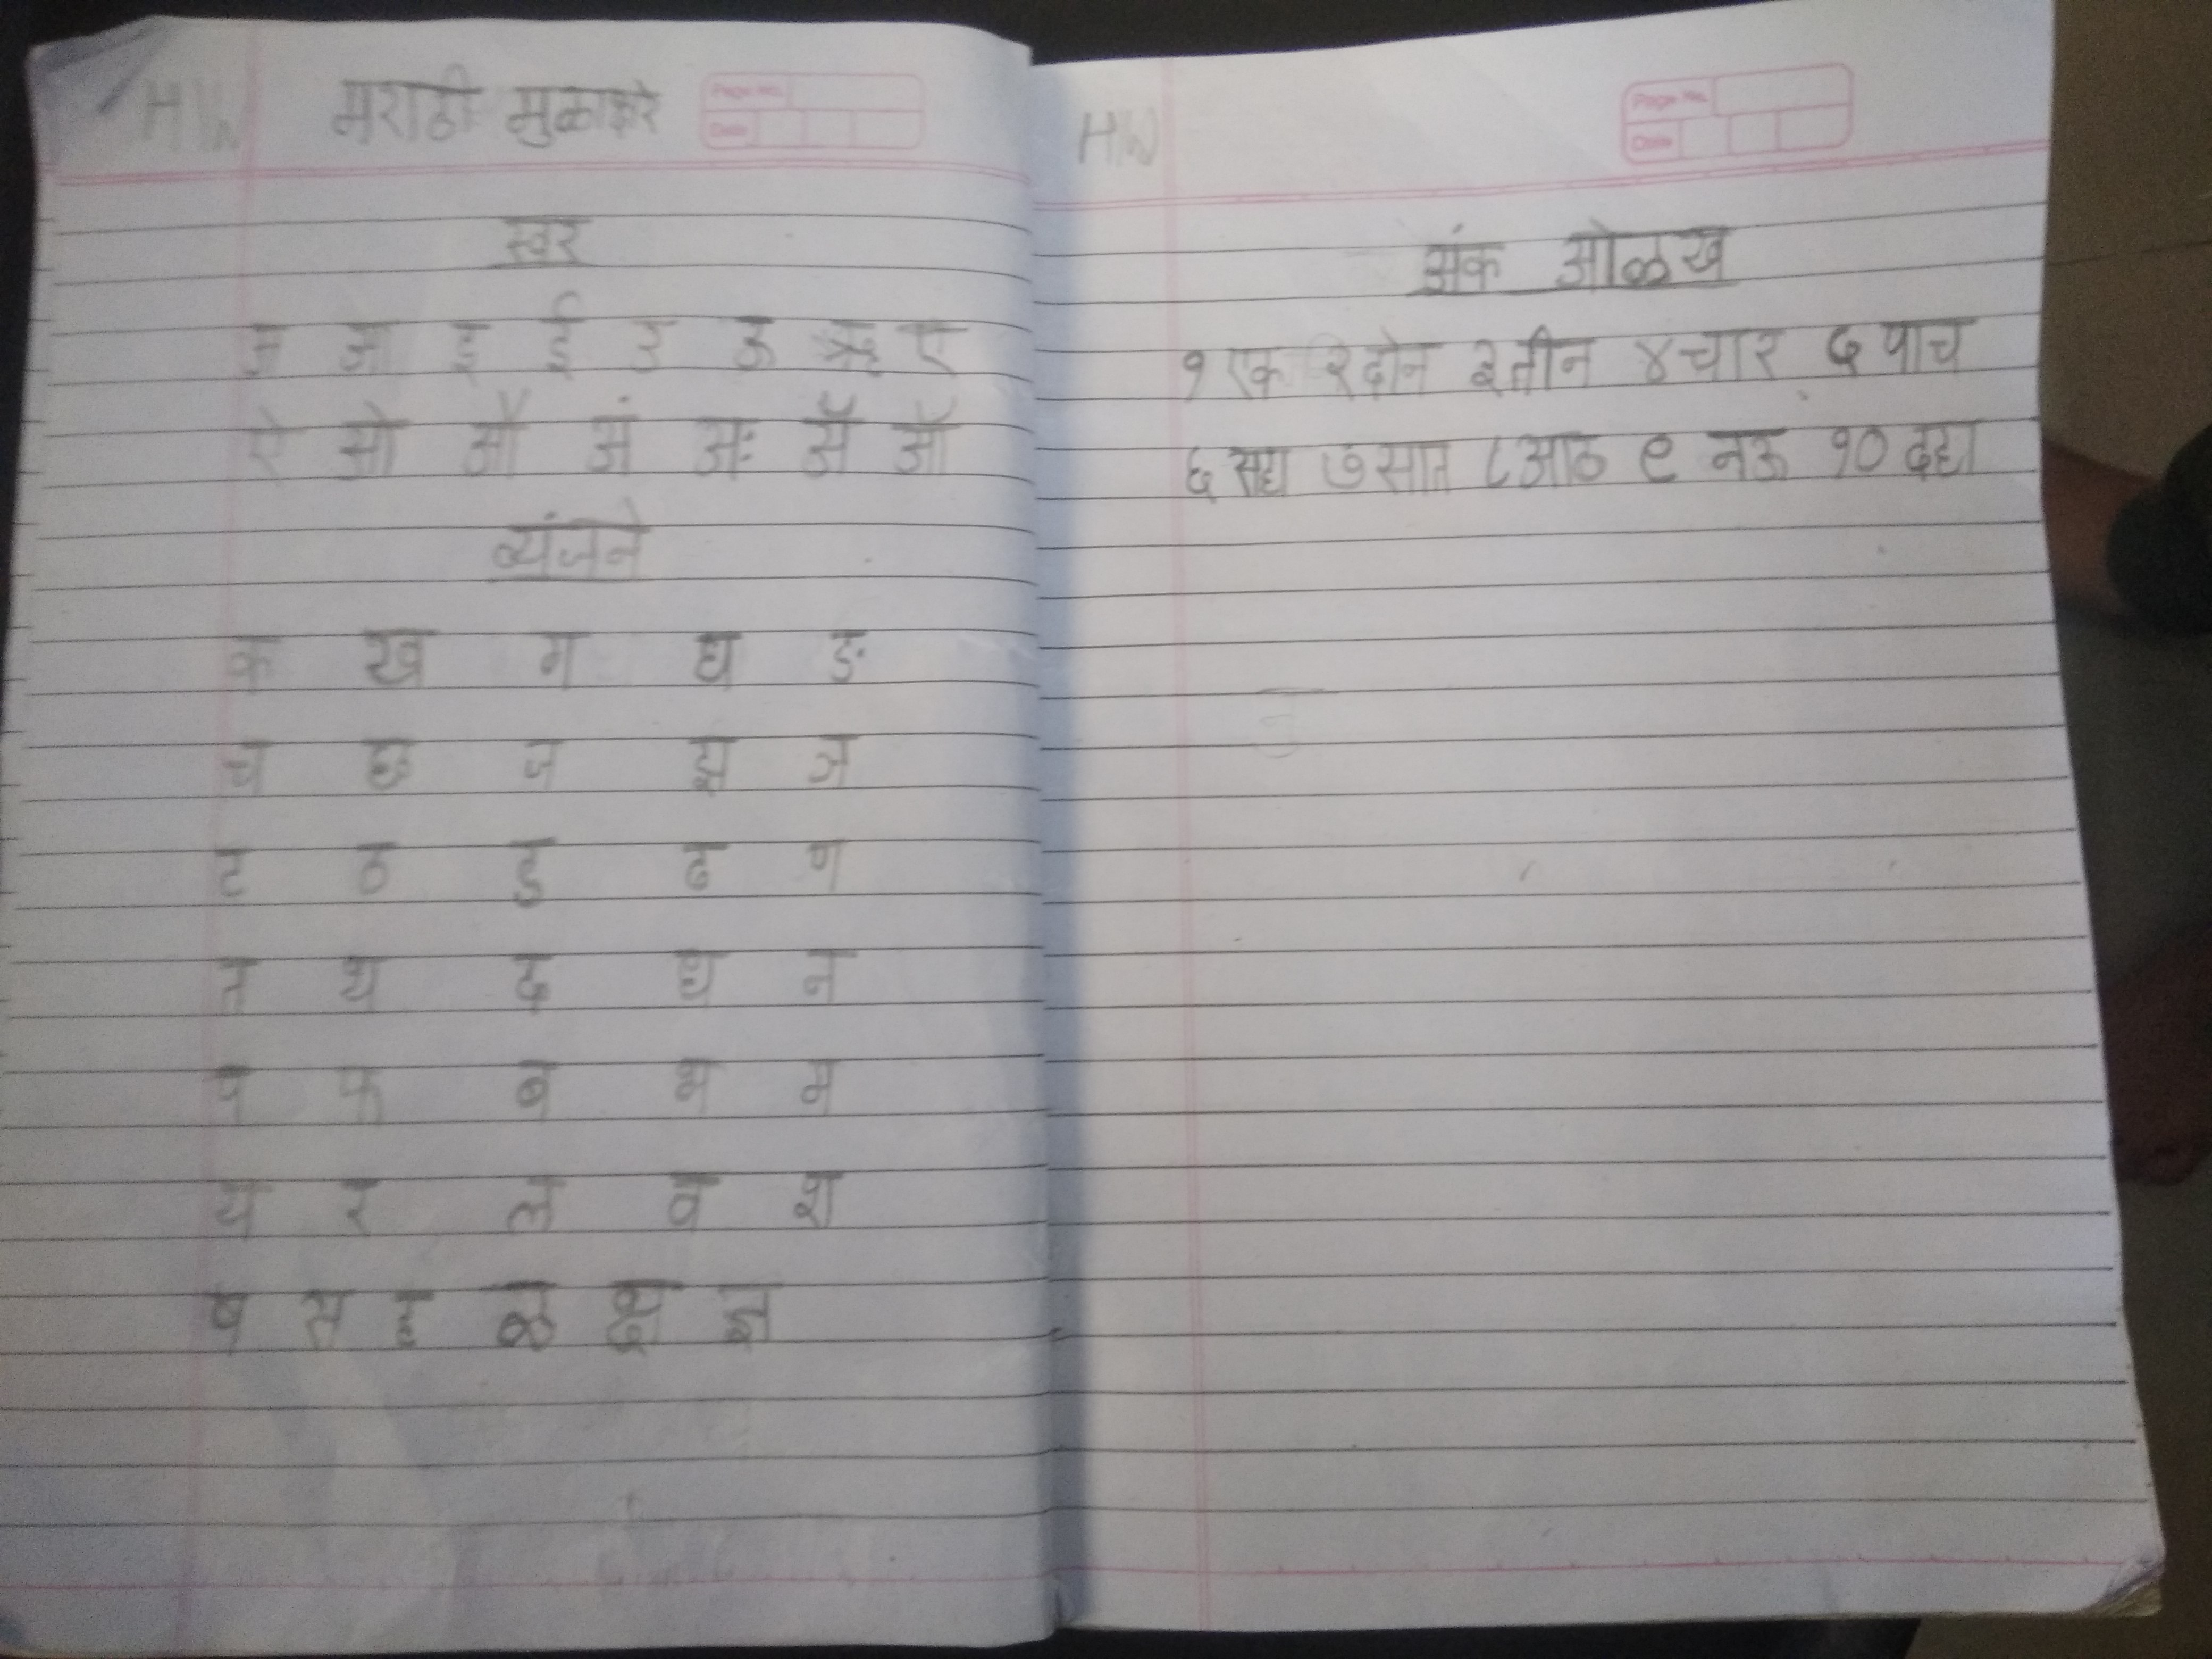 H/W मराठी मुळाक्षरे
Page No.
Date
स्वर
अ आ इ ई उ ऊ ऋ ए
ऐ ओ औ अं अः अॅ ऑ
व्यंजने
क ख ग घ ङ
च छ ज झ ञ
ट ठ ड ढ ण
त थ द ध न
प फ ब भ म
य र ल व श
ष स ह ळ क्ष ज्ञ
H/W
Page No.
Date
अंक ओळख
१ एक २ दोन ३ तीन ४ चार ५ पाच
६ सहा ७ सात ८ आठ ९ नऊ १० दहा